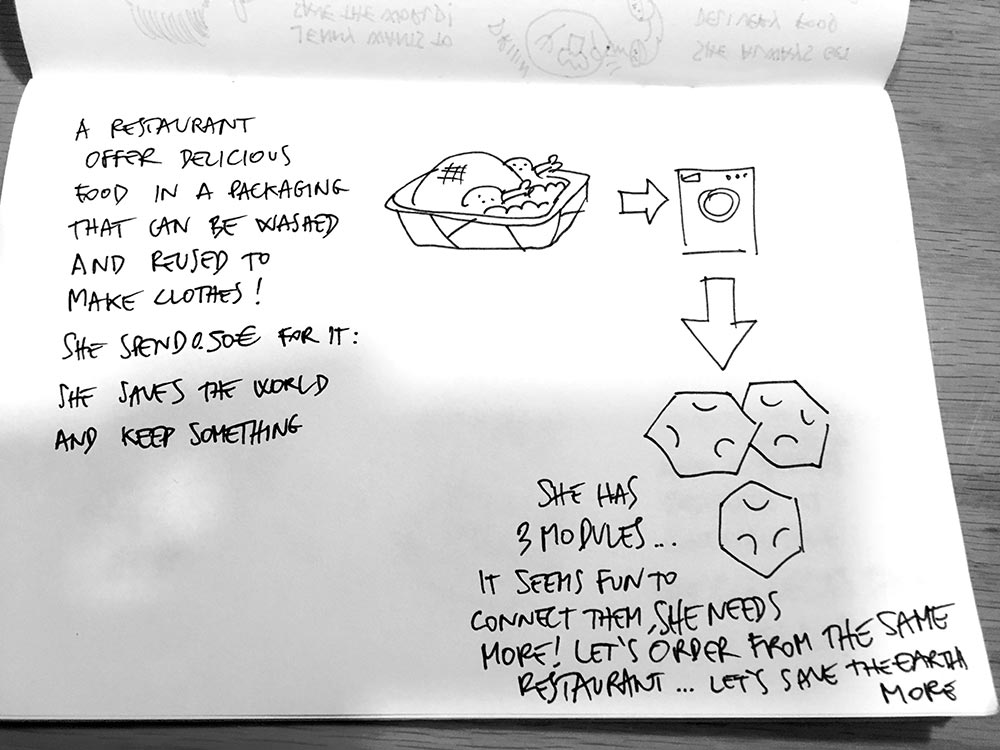 A RESTAURANT
OFFER DELICIOUS
FOOD IN A PACKAGING
THAT CAN BE WASHED
AND REUSED TO
MAKE CLOTHES!
SHE SPEND 0.50€ FOR IT:
SHE SAVES THE WORLD
AND KEEP SOMETHING
SHE HAS
3 MODULES...
IT SEEMS FUN TO
CONNECT THEM, SHE NEEDS
MORE! LET'S ORDER FROM THE SAME
RESTAURANT... LET'S SAVE THE EARTH
MORE